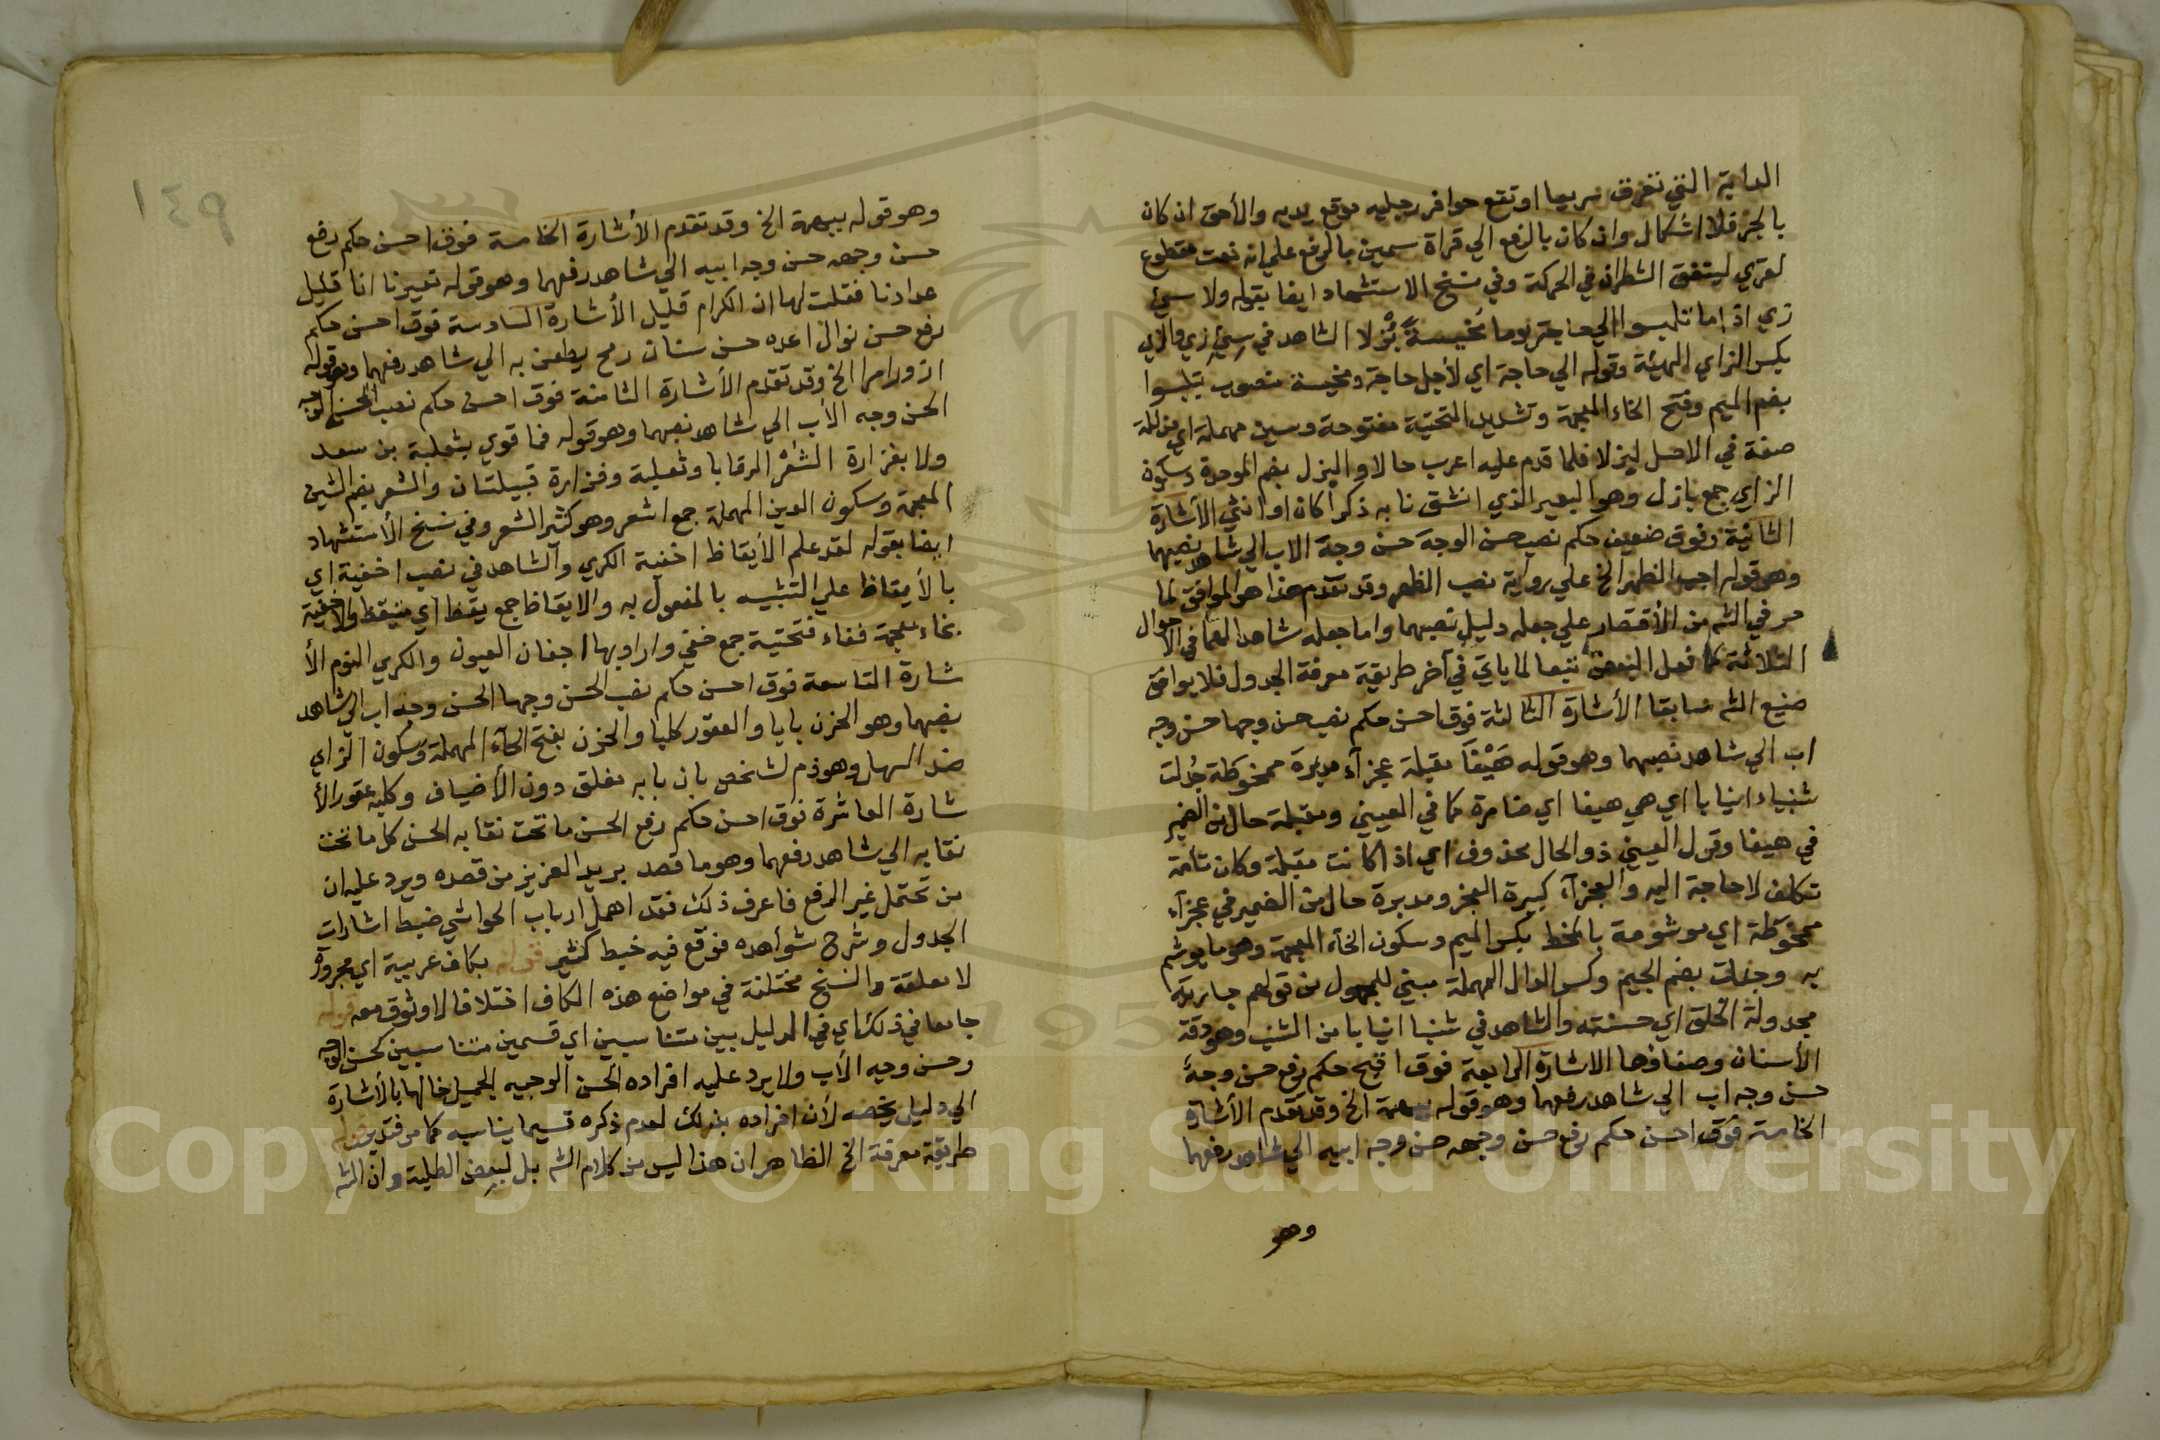 الدابة التي تعرق سريعا او تقع حوافر رجليه موقع يديه والأحق ان كان
بالجر فلا اشكال وان كان بالرفع الي قراة سمين بالرفع علي انه نعت مقطوع
لعري ليتفق الشطران في الحركة وفي نسخ الاستشهاد ايضا بقوله ولا سيئ
زي اذا ما تلبسوا الي حاجة يوما مُخيسةً بُزلا الشاهد في سيئ زي والزي
بكسر الزاي الهيئة وقوله الي حاجة اي لأجل حاجة ومخيسة منصوب بتلبسوا
بضم الميم وفتح الخاء المعجمة وتشديد التحتية مفتوحة وسين مهملة اي مذللة
صفة في الاصل لبزلا فلما قدم عليه اعرب حالا والبزل بضم الموحدة وسكون
الزاي جمع بازل وهو البعير الذي انشق نابه ذكرا كان او انثي الأشارة
الثانية فوق ضعيف حكم نصب حسن الوجه حسن وجه الاب الي شاهد نصبهما
وهو قوله اجب الظهر الخ علي رواية نصب الظهر وقد تقدم هذا هو الموافق لما
مر في الشم من الأقتصار علي جعله دليل نصبهما واما جعله شاهدا لهما في الأحوال
الثلاثة كما فعل البعض تبعا لما ياتي في آخر طريقة معرفة الجدول فلا يوافق
صنيع الشم سابقا الأشارة الثالثة فوق احسن حكم نصب حسن وجها حسن وجه
اب الي شاهد نصبهما وهو قوله هَيْفَا مقبلة عجزآء مدبرة ممخوطة جُدلت
شنباء انيابا اي هي هيفا اي ضامرة كما في العيني ومقبلة حال من الضمير
في هيفا وقول العيني ذو الحال محذوف اي اذا كانت مقبلة وكان تامة
تكلف لا حاجة اليه والعجزآء كبيرة العجز ومدبرة حال من الضمير في عجزآء
ممخوطة اي موشومة بالمخط بكسر الميم وسكون الخاء المعجمة وهو ما يوشم
به وجدلت بضم الجيم وكسر الدال المهملة مبني للمجهول من قولهم جارية
مجدولة الخلق اي حسنته والشاهد في شنبا انيابا من الشنب وهو دقة
الأسنان وصفاؤها الاشارة الرابعة فوق اقبح حكم رفع حسن وجهُ
حسن وجه اب الي شاهد رفعهما وهو قوله ببهمة الخ وقد تقدم الأشارة
الخامسة فوق احسن حكم رفع حسن وجهه حسن وجه ابيه الي شاهد رفعهما
وهو
١٤٩
وهو قوله ببهمة الخ وقد تقدم الأشارة الخامسة فوق احسن حكم رفع
حسن وجهه حسن وجه ابيه الي شاهد رفعهما وهو قوله تعيرنا انا قليل
عدادنا فقلت لها ان الكرام قليل الأشارة السادسة فوق احسن حكم
رفع حسن نوال اعده حسن سنان رمح يطعن به الي شاهد رفعهما وهو قوله
ازورامرا الخ وقد تقدم الأشارة الثامنة فوق احسن حكم نصب الحسن الوجه
الحسن وجه الأب الي شاهد نصبهما وهو قوله فما قومي بثعلبة بن سعد
ولا بفزارة الشُعْر الرقابا وثعلبة وفزارة قبيلتان والشعر بضم الشين
المعجمة وسكون العين المهملة جمع اشعر وهو كثير الشعر وفي نسخ الأستشهاد
ايضا بقوله لقد علم الأيقاظ اخفية الكري والشاهد في نصب اخفية اي
بالأيقاظ علي التشبيه بالمفعول به والايقاظ جمع يقظ اي متيقظ والأخفية
بخاء معجمة ففاء فتحتية جمع خفي واراد بها اجفان العيون والكري النوم الأ
شارة التاسعة فوق احسن حكم نصب الحسن وجها الحسن وجه اب الي شاهد
نصبهما وهو الحزن بابا والعقور كلبا والحزن بفتح الحآء المهملة وسكون الزاي
ضد السهل وهو ذم لشخص بان بابه مغلق دون الأضياف وكلبه عقور الأ
شارة العاشرة فوق احسن حكم رفع الحسن ما تحت نقابه الحسن كل ما تحت
نقابه الي شاهد رفعهما وهو ما قصد بريد العزيز من قصده ويرد عليه ان
من تحتمل غير الرفع فاعرف ذلك فقد اهمل ارباب الحواشي ضبط اشارات
الجدول وشرح شواهده فوقع فيه خبط كثير قوله بكاف عربية اي مجرورة
لا معلقة والنسخ مختلفة في مواضع هذه الكاف اختلافا لا وثوق معه قوله
جامعا في ذلك اي في الدليل بين متناسبين اي قسمين متناسبين كحسن الوجه
وحسن وجه الأب ولا يرد عليه افراده الحسن الوجه الجميل خالها بالأشارة
الي دليل يخصه لأن افراده بذلك لعدم ذكره قسيما يناسبه كما مر قوله
طريقة معرفة الخ الظاهر ان هذا ليس من كلام الشم بل لبعض الطلبة وان الشم
Copyright © King Saud University
195